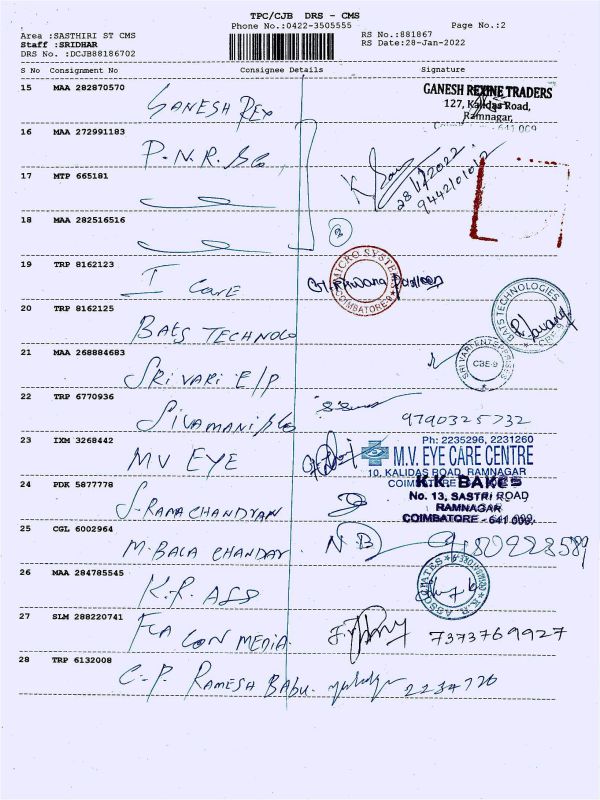 TPC/CJB DRS - CMS
Phone No.:0422-3505555 Page No.:2
Area :SASTHIRI ST CMS RS No.:881867
Staff :SRIDHAR RS Date:28-Jan-2022
DRS No. :DCJB88186702
S No Consignment No Consignee Details Signature
15 MAA 282870570 GANESH REX
GANESH REXINE TRADERS
127, Kalidas Road,
Ramnagar,
641 009
16 MAA 272991183 P.N.R. &Co
17 MTP 665181
28/1/2022
18 MAA 282516516
2
19 TRP 8162123 I Care
MICRO SYSTEMS
COIMBATORE-9
20 TRP 8162125 BATS TECHNOLO
BATS TECHNOLOGIES
CBE-9
21 MAA 268884683 SRI VARI E/P
SRI VARI ENTERPRISES
CBE-9
22 TRP 6770936 Sivamani &Co 9790325732
23 IXM 3268442 MV EYE
Ph: 2235296, 2231260
M.V. EYE CARE CENTRE
10, KALIDAS ROAD, RAMNAGAR
24 PDK 5877778 S. RAMA CHANDYAN
K.K BAKES
No. 13, SASTRI ROAD
RAMNAGAR
COIMBATORE - 641 009.
25 CGL 6002964 M. BALA CHANDAY. N.B 9180928589
26 MAA 284785545 K.R. ASS
K.R. ASSOCIATES
27 SLM 288220741 FCA CON MEDIA. 7373769927
28 TRP 6132008 C.P. RAMESH BABU. 2234770